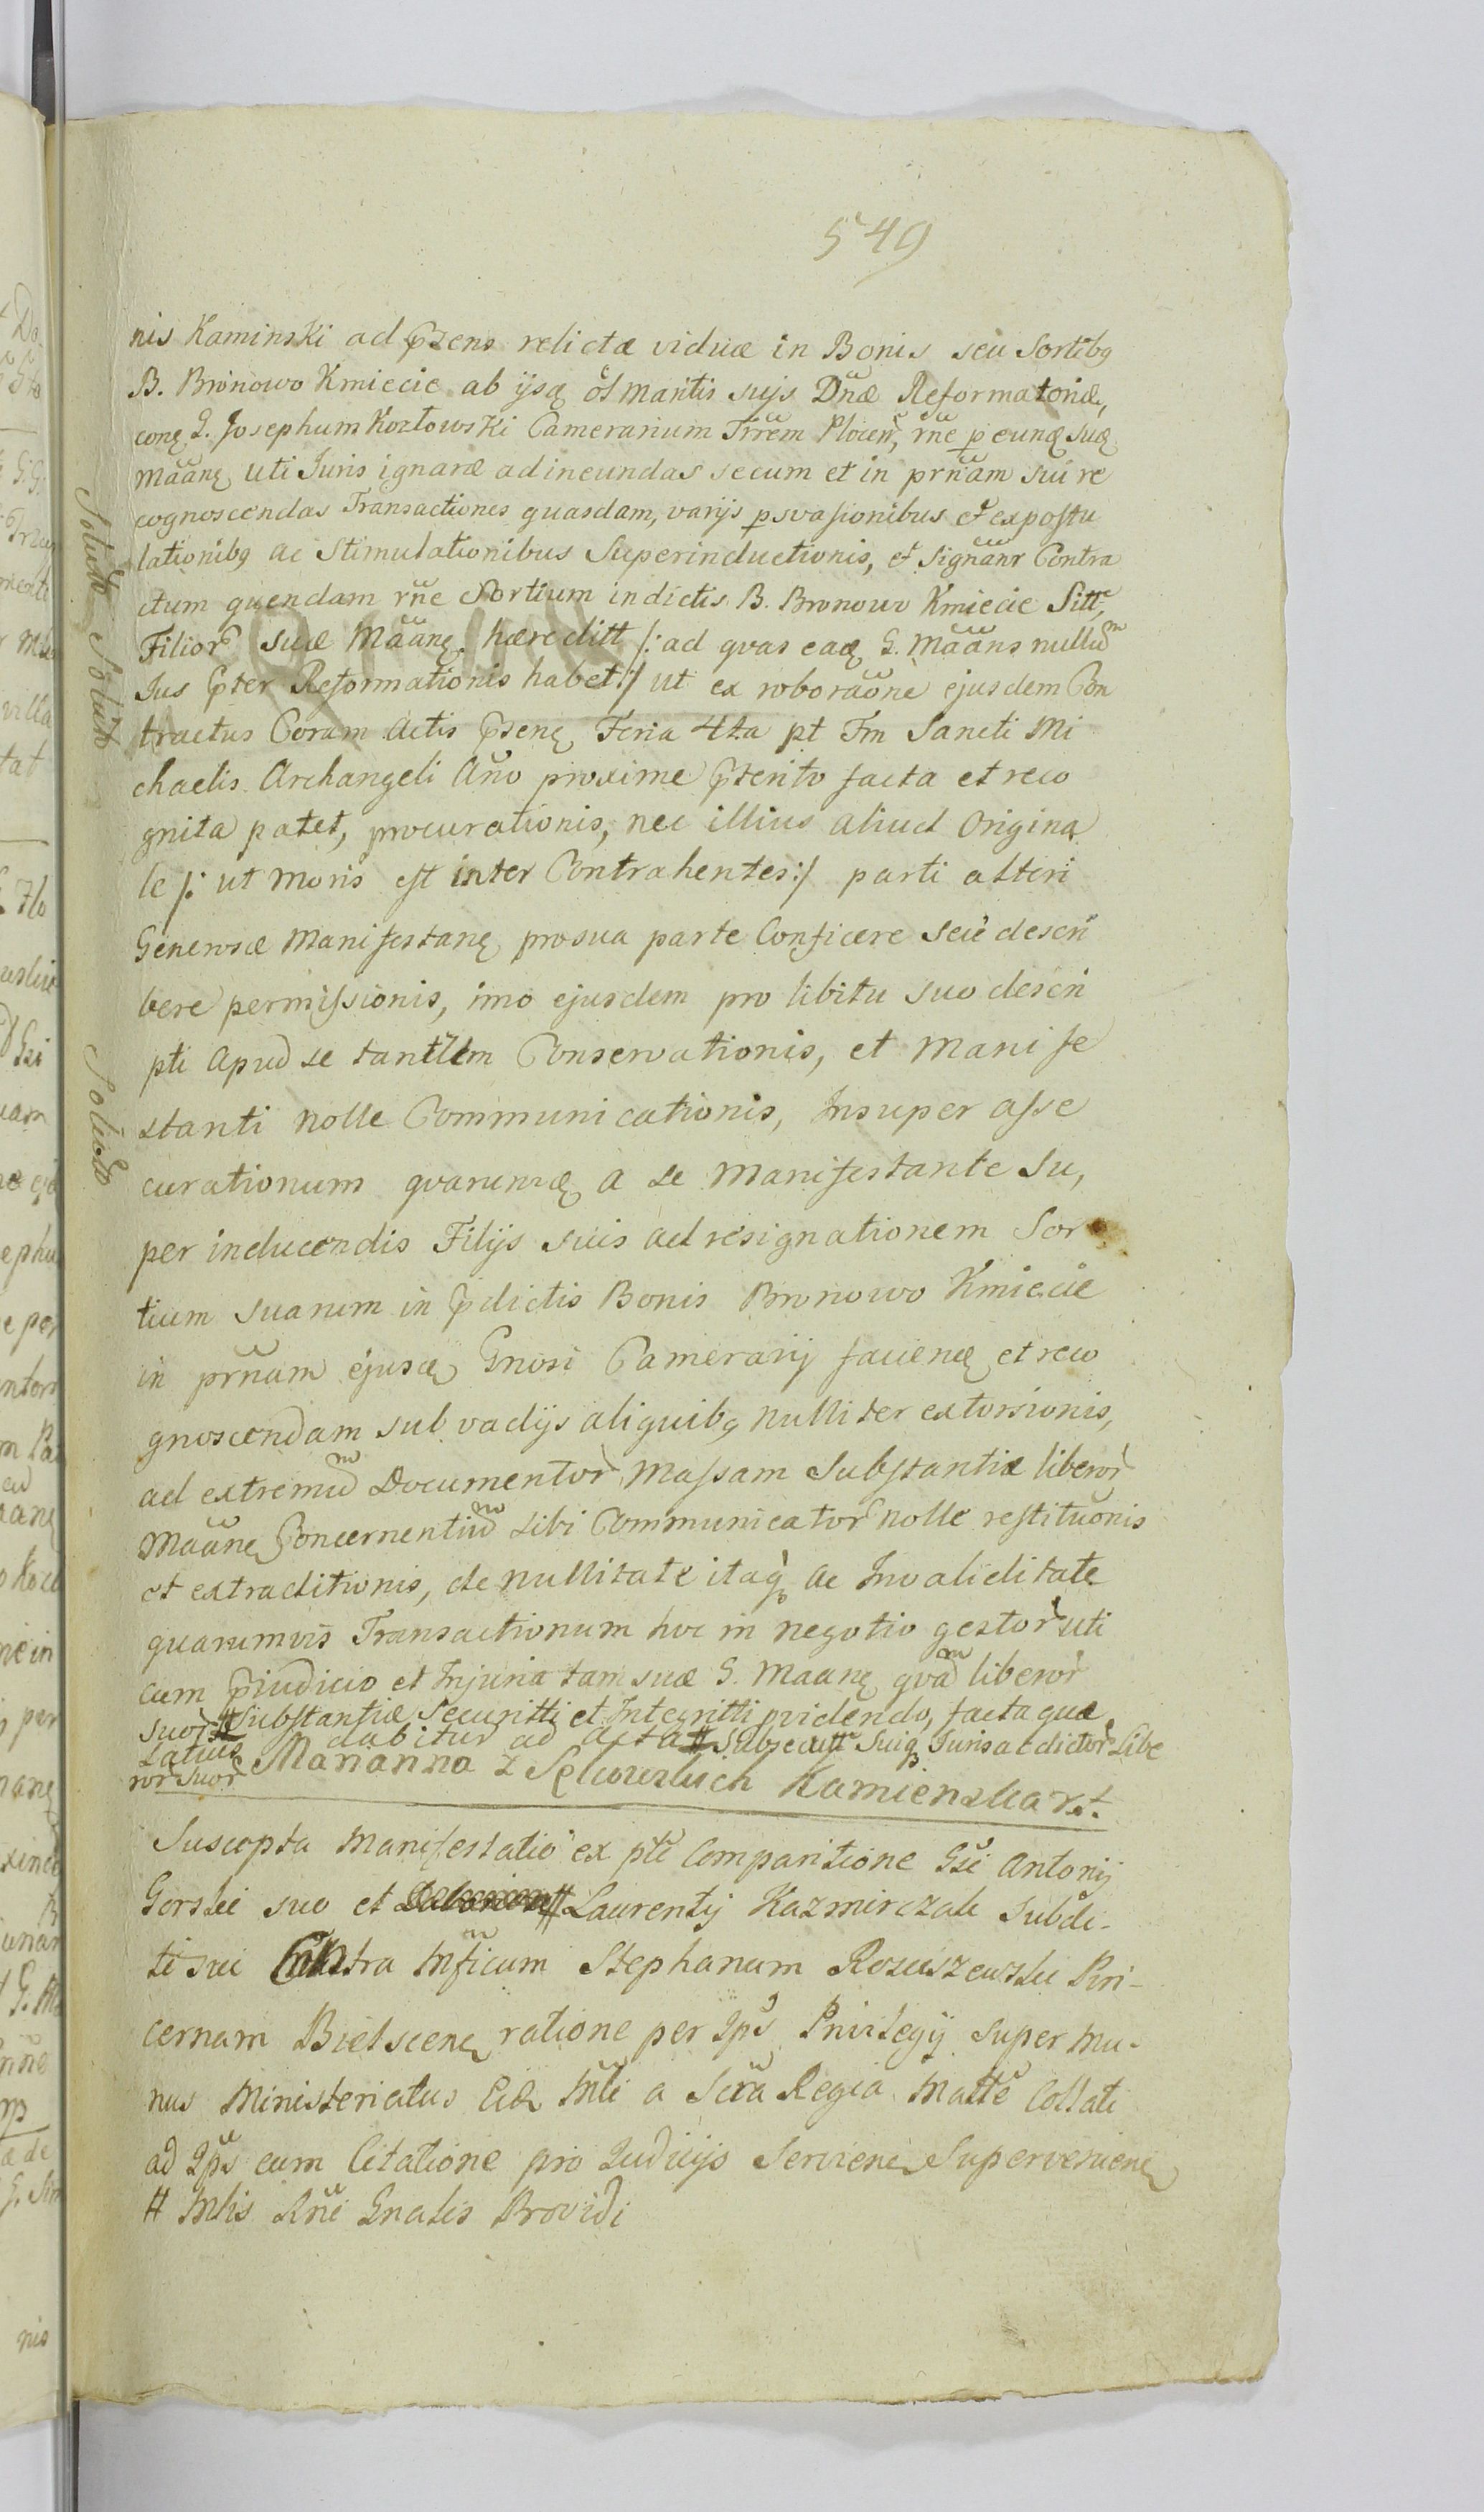 549
nis Kaminski ad Pzens relictæ viduæ in Bonis seu Sortibq
B. Bronowo Kmiecie ab ijsq ol maritis suis Dnæ Reformatoriæ,
conę G. Josephum Kozłowski Camerarium Trrem Plocen, rne p eunq suæ
Maanę uti Juris ignaræ ad ineundas secum et in prnam sui re
cognoscendas Transactiones quasdam, varijs psvasionibus et expostu
lationibq ac Stimulationibus Superinductionis, et signanr Contra
ctum quendam rne Sortium in dictis B. Bronowo Kmiecie Sitt,
Filior suæ Maanę hæreditt /: ad qvas eaq G. Maans nullum
Jus Pter Reformationis habet :/ ut ex roboraone ejusdem Con
tractus Coram Actis Pzenę Feria 4ta pt Fm Sancti Mi
chaelis Archangeli Ano proxime Pterito facta et reco
gnita patet, procurationis, nec illius aliud Origina
le /: ut moris est inter Contrahentes :/ parti alteri
Generosæ Manifestanę pro sua parte Conficere seu descri
bere permissionis, imo ejusdem pro libitu suo descri
pti apud se tantum Conservationis, et Manife
stanti nolle Communicationis, Insuper asse
curationum qvarumq a se Manifestante Su,
per inducendis Filijs suis ad resignationem Sor
tium suarum in Pdictis Bonis Bronowo Kmiecie
in prnam ejusq Gnosi Camerarij faciendę et reco
gnoscendam sub vadijs aliquibq nulliter extorsionis,
ad extremum Documentor Massam Substantiæ liberor
Maanę Concernentium sibi Communicator nolle restituonis
et extraditionis, de nullitate itaq ac Invaliditate
quarumvis Transactionum hoc in negotio gestor uti
cum Piudicio et Injuria tam suæ G. Maanę qvam liberor
suor # Substantiæ Securitti et Integritti pvidendo, facta quæ
Latius dabitur ad acta # subsecutt suiq Juris ac dictor Libe
ror suor Marianna z Kamienska
Suscepta Manifestatio ex pte Comparitione Gsi Antonij
Gorski suo et # Laurentij Kazmirczak Subdi-
ti sui Contra Mficum Stephanum Rosciszewski Pin-
cernam Bielscenę ratione per Ips Privilegij super mu-
nus Ministeriatus Eid Mli a Scra Regia Matte Collati
ad Ips cum Citatione pro Judicijs Servienę Supervenienę
# Mlis Rne Gnalis Providi